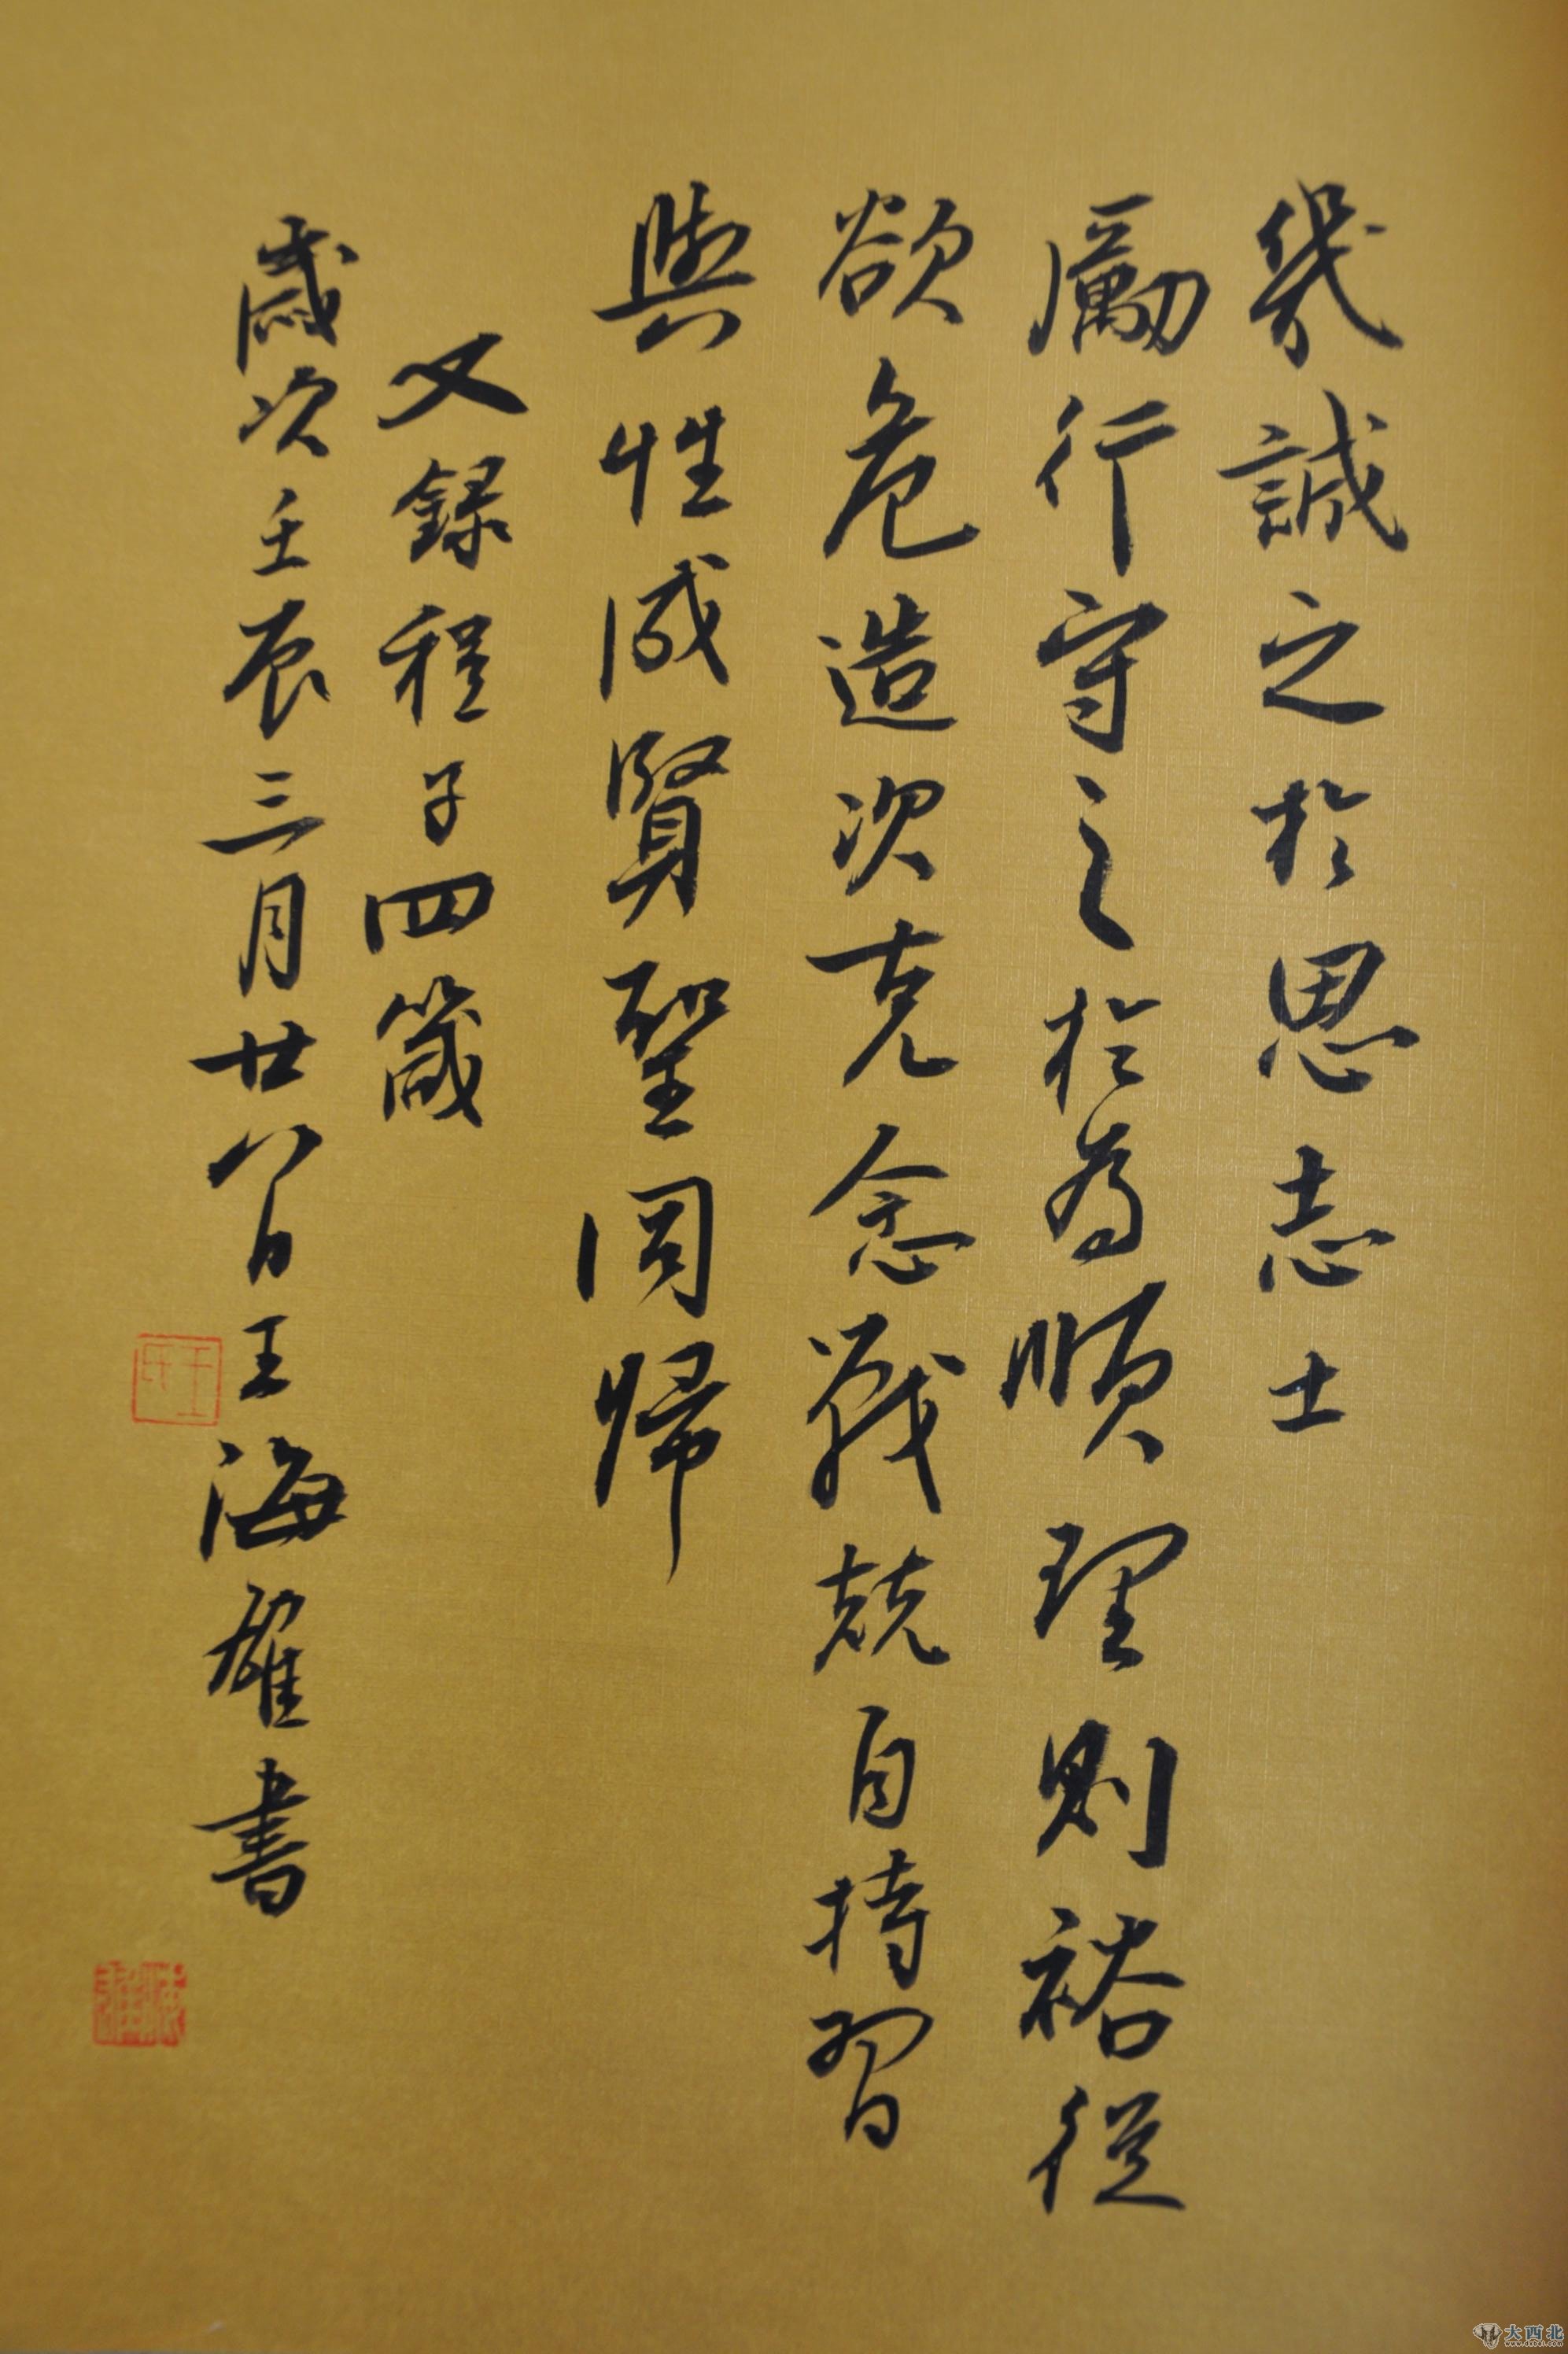 幾誠之於思志士
勵行守之於為順理則裕從
欲危造次克念戰兢自持習
與性成賢聖同歸
又錄程子四箴
歲次壬辰三月廿八日王海雄書
王氏
大西北